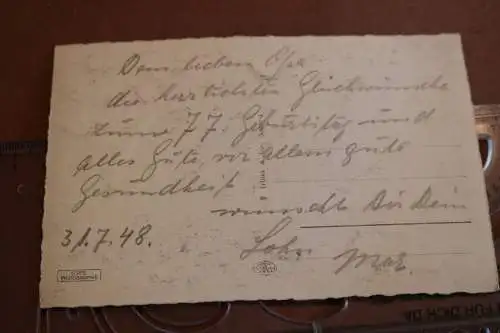 Dem lieben Opa
die herzlichsten Glückwünsche
zum 77. Geburtstag und
alles Gute, vor allem gute
Gesundheit
wünscht Dir Dein
31.7.48.
Sohn
Max.
FÜR DICH